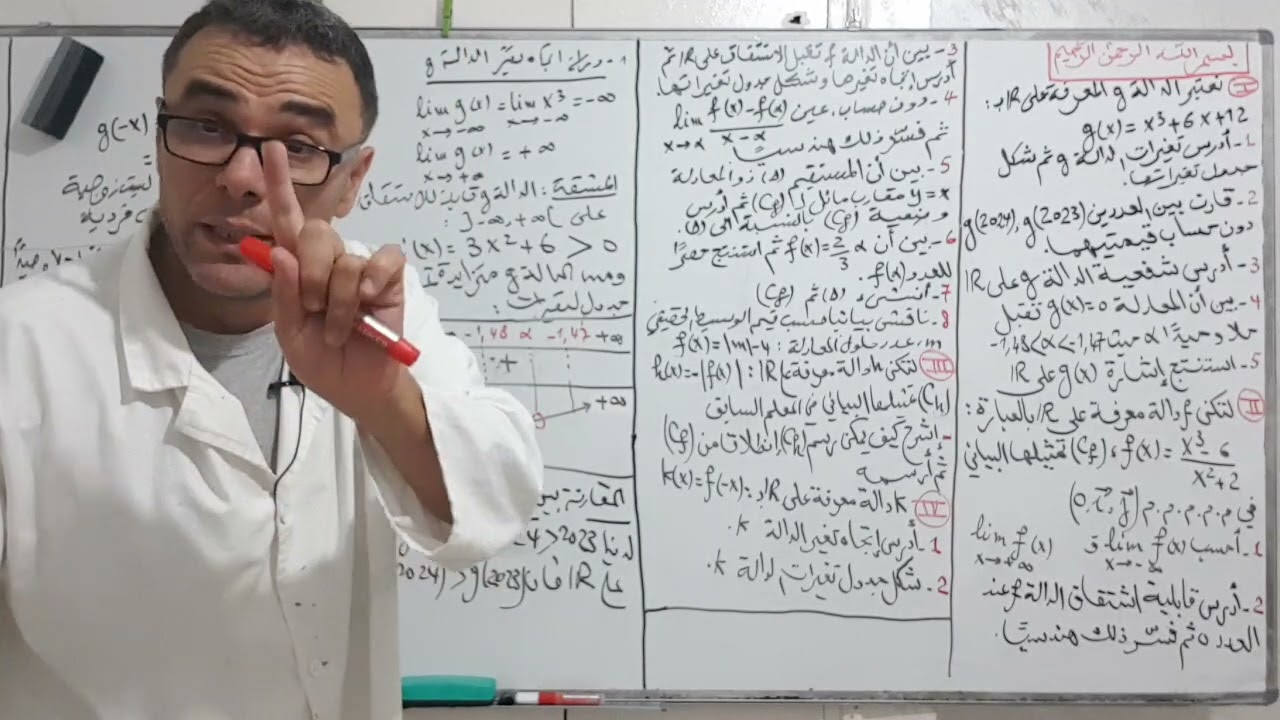 بسم الله الرحمن الرحيم
I نعتبر الدالة g المعرفة على IR بـ:
g(x) = x³+6x+12
1- أدرس تغيرات الدالة g ثم شكل
جدول تغيراتها.
2- قارن بين العددين g(2023) , g(2024)
دون حساب قيمتيهما
3- أدرس شفعية الدالة g على IR
4- بين أن المعادلة g(x)=0 تقبل
حلا وحيدًا α حيث -1,48<α<-1,47
5- استنتج إشارة g(x) على IR
II لتكن f دالة معرفة على IR بالعبارة:
f(x) = x³-6 / x²+2 ، (Cf) تمثيلها البياني
في م.م.م.م (0,i,j)
1- أحسب lim f(x) x→-∞ و lim f(x) x→+∞
2- أدرس قابلية اشتقاق الدالة f عند
العدد 0 ثم فسّر ذلك هندسيًا.
3- بين أن الدالة f تقبل الاشتقاق على IR ثم
أدرس إتجاه تغيرها وشكل جدول تغيراتها.
4- دون حساب، عين lim f(x)-f(α) / x-α x→α
ثم فسّر ذلك هندسيًا.
5- بين أن المستقيم (Δ) ذو المعادلة
y = x مقارب مائل لـ (Cf) ثم أدرس
وضعية (Cf) بالنسبة الى (Δ).
6- بين أن f(α)=3/2 α ثم استنتج حصرًا
للعدد f(α).
7- أنشئ (Δ) ثم (Cf)
8- ناقش بيانيا حسب قيم الوسيط الحقيقي
m، عدد حلول المعادلة: f(x)=|m|-4
III لتكن h دالة معرفة على IR: h(x)=-|f(x)|
(Ch) تمثيلها البياني في المعلم السابق
- إشرح كيف يمكن رسم (Ch) إنطلاقا من (Cf)
ثم أرسمه
IV k دالة معرفة على IR بـ: k(x)=f(-x)
1- أدرس إتجاه تغير الدالة k.
2- شكل جدول تغيرات الدالة k.
1- دراسة اتجاه تغير الدالة g
lim g(x) = lim x³ = -∞
x→-∞ x→-∞
lim g(x) = +∞
x→+∞
المشتقة: الدالة g قابلة للاشتقاق
على ]-∞,+∞[:
(x) = 3x²+6 > 0
ومنه الدالة g متزايدة
جدول لتغيرات:
-1,48 α -1,47 +∞
+
0 +∞
المقارنة بين
لدينا 2023<
على IR فإن g(2023)<
g(-x)
=
ليست زوجية
فردية